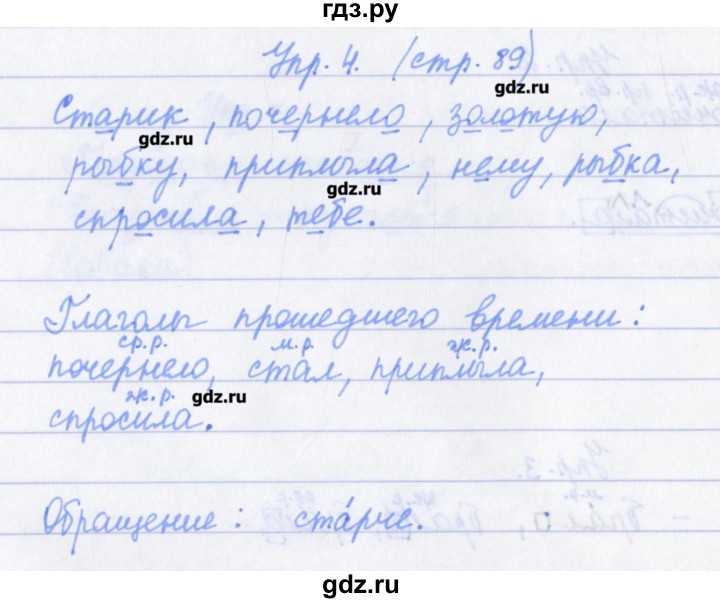 гдз.ру
Упр. 4. (стр. 89)
gdz.ru
Старик, почернело, золотую,
gdz.ru
рыбку, приплыла, нему, рыбка,
gdz.ru
спросила, тебе.
Глаголы прошедшего времени:
ср.р. м.р. ж.р.
почернело, стал, приплыла,
ж.р. gdz.ru
спросила.
Упр. 3.
Обращение: ста́рче.
gdz.ru